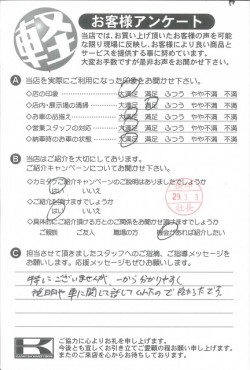 軽
お客様アンケート
当店では、お買い上げ頂いたお客様の声を可能
な限り現場に反映し、お客様により良い商品と
サービスを提供する事に努めています。
大変お手数ですが是非お声をお聞かせ下さい。
A 当店を実際にご利用になった印象をお聞かせ下さい。
◇店の印象 大満足 満足 ふつう やや不満 不満
◇店内・展示場の清掃 大満足 満足 ふつう やや不満 不満
◇お車の品揃え 大満足 満足 ふつう やや不満 不満
◇営業スタッフの対応 大満足 満足 ふつう やや不満 不満
◇納車時のお車の状態 大満足 満足 ふつう やや不満 不満
B 当店はご紹介を大切にしております。
ご紹介キャンペーンについてお聞かせ下さい。
◇カミタケご紹介キャンペーンのご説明はありましたでしょうか
はい いいえ
◇ご紹介を頂けますでしょうか
はい いいえ
◇具体的にご紹介頂ける方とのご関係をお聞かせ頂けますでしょうか
ご親族 ご友人 職場の方 機会があれば紹介したい
C 担当させて頂きましたスタッフへのご指摘、ご指導メッセージを
お願いします。応援メッセージもぜひお願いします。
特にございませんが、一から分かりやすく
説明や車に関して話してくれたので良かったです。
K
ご協力に心よりお礼を申し上げます。
今後とも宜しくお引き立てとご愛顧の程お願い申し上げます。
またのご来店を心からお待ちしております。